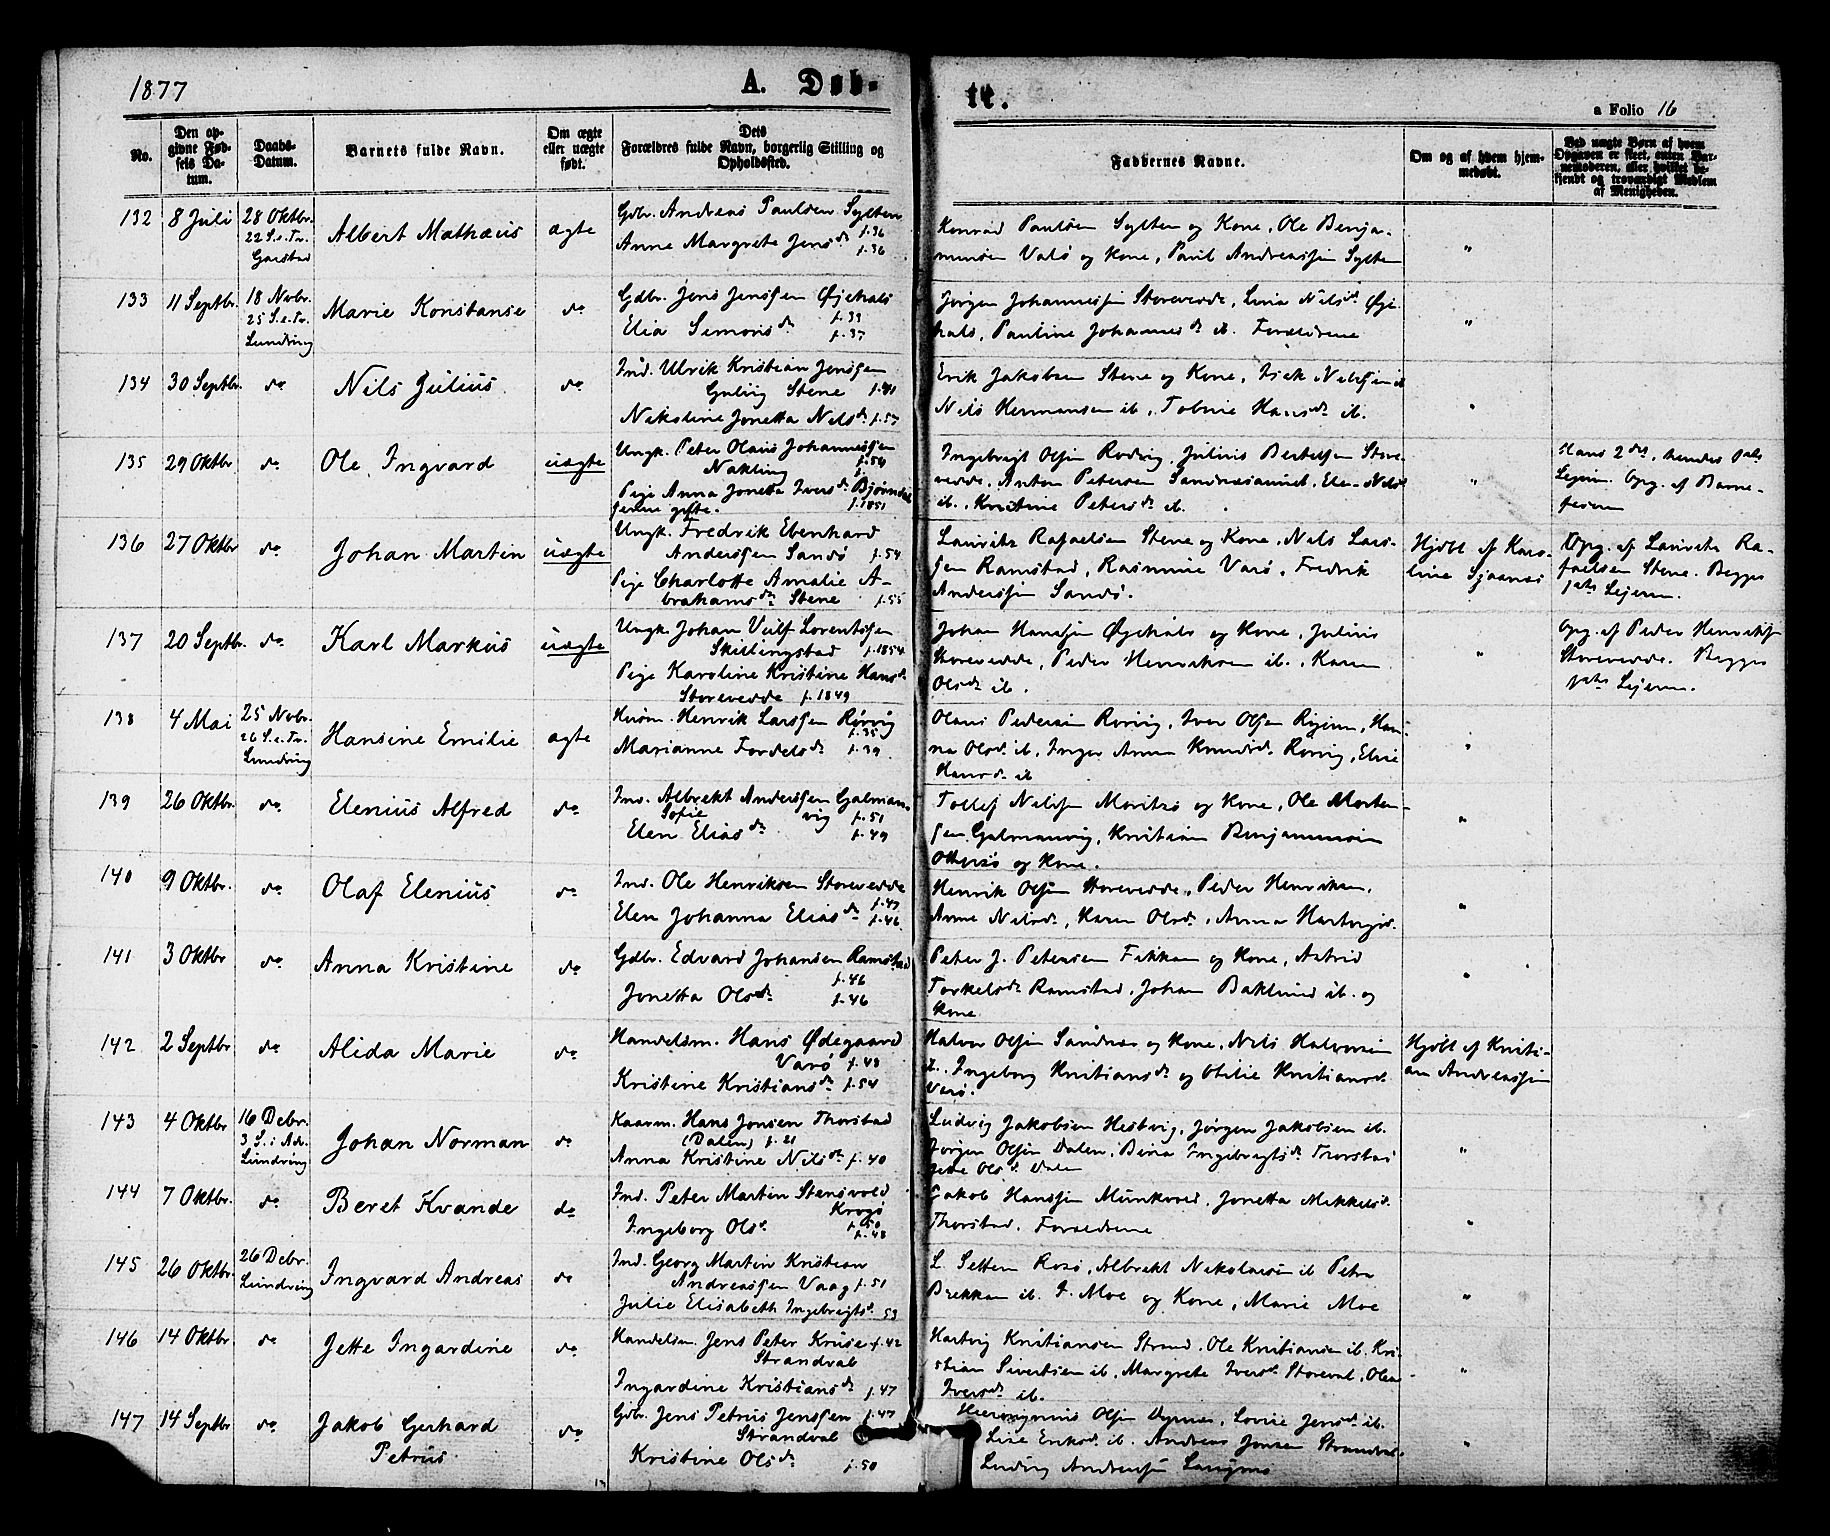 1877
A. Døb-
te.
a Folio 16
No.
Den op-
givne Fød-
sels Da-
tum.
Daabs-
Datum.
Barnets fulde Navn.
Om ægte
eller uægte
født.
Dets
Forældres fulde Navn, borgerlig Stilling og
Opholdssted.
Faddernes Navne.
Om og af hvem hjem-
medøbt.
Ved uægte Børn af hvem
Opgaven er skeet, enten Bar-
nemoderen, eller hvilket be-
kjendt og troværdigt Medlem
af Menigheden.
132
8 Juli
28 Oktbr.
22 S. e. Tr.
Garstad
Albert Mathæus
ægte
Gdbr. Andreas Paulsen Sylten
f. 36
Anne Margrete Jensdr
f. 36
Konrad Paulsen Sylten og Kone, Ole Benja-
minsen Valø og Kone, Paul Andreassen Sylten
"
133
11 Septbr.
18 Novbr.
25 S. e. Tr.
Lundring
Marie Konstanse
do
Gdbr. Jens Jenssen Øjehals
f. 39
Elia Simonsdr
f. 37
Jørgen Johannessen Storevedde, Lina Nilsdr Øje-
hals, Pauline Johannesdr ib. Forældrene
"
134
30 Septbr.
do
Nils Julius
do
Ind. Ulrik Kristian Jenssen
Guling Stene f. 41
Nikoline Jonetta Nilsdr f. 57
Erik Jakobsen Stene og Kone, Isak Nilssen ib
Nils Hermansen ib, Tobine Hansdr ib.
"
135
29 Oktbr
do
Ole Ingvard
uægte
Ungk. Peter Olaus Johannessen
Nakling f. 54
Pige Anna Jonetta Iversdr Bjørndal
senere gifte. f. 1851
Ingebrigt Olsen Rødvig, Julius Bertelsen Store-
vedde, Anton Petersen Sandnæsaunet, Elen Nilsd
ib, Kristine Petersdr ib.
"
Hans 2det, hendes 1ste
Lejerm. Opg. af Barne-
faderen
136
27 Oktbr
do
Johan Martin
uægte
Ungk. Fredrik Ebenhard
Anderssen Sandø f. 54
Pige Charlotte Amalie A-
brahamsdr Stene f. 55
Lauritz Rafaelsen Stene og Kone, Nils Lars-
sen Ramstad, Rasmine Varø, Fredrik
Anderssen Sandø.
Hjdbt af Karo-
line Sjaanes
Opg. af Lauritz Ra-
faelsen Stene. Begges
1ste Lejerm.
137
20 Septbr.
do
Karl Markus
uægte
Ungk. Johan Veilf Lorentssen
Skillingstad f. 1854
Pige Karoline Kristine Hansdr
Storevedde f. 1849
Johan Hanssen Øjehals og Kone, Julius
Storevedde, Peder Henriksen ib. Karen
Olsdr ib.
"
Opg. af Peder Henriksen
Storevedde. Begges
1ste Lejerm.
138
4 Mai
25 Novbr.
26 S. e. Tr.
Lundring
Hansine Emilie
ægte
Husm. Henrik Larssen Rørvig
f. 35
Marianne Fordelsdr f. 39
Olaus Pedersen Rørvig, Iver Olsen Ryjem, Han-
na Olsdr ib, Inger Anna Knudsdr Rørvig, Elise
Hansdr ib
"
139
26 Oktbr.
do
Elenius Alfred
do
Ins. Albrekt Anderssen Galman-
Sofie vig f. 51
Elen Eliasdr f. 49
Tollef Nilssen Moritsø og Kone, Ole Morten-
sen Galmanvig, Kristian Benjaminsen
Ottersø og Kone.
"
140
9 Oktbr.
do
Olaf Elenius
do
Ind. Ole Henriksen Storevedde
f. 47
Elen Johanna Eliasdr f. 46
Henrik Olsen Storevedde, Peder Henriksen,
Anne Nilsdr, Karen Olsdr, Anna Hartvigsd.
"
141
3 Oktbr
do
Anna Kristine
do
Gdbr. Edvard Johansen Ramstad
f. 46
Jonetta Olsdr f. 46
Peter J. Petersen Fikkan og Kone, Astrid
Torkelsdr Ramstad, Johan Baklund ib. og
Kone
"
142
2 Septbr
do
Alida Marie
do
Handelsm. Hans Ødegaard
Varø f. 43
Kristine Kristiansdr f. 54
Halvor Olsen Sandnes og Kone, Nils Halvorsen
Ingeborg Kristiansdr og Otilie Kristiansdr
Varø.
Hjdbt af Kristi-
an Andreassen
143
4 Oktbr
16 Debr.
3 S. i Adv.
Lundring
Johan Norman
do
Kaarm. Hans Jonsen Thorstad
(Dalen) f. 21
Anna Kristine Nilsdr f. 40
Ludvig Jakobsen Hestvig, Jørgen Jakobsen ib.
Jørgen Olsen Dalen, Beria Ingebrigtsdr Thorstad
Jette Olsdr Dalen
"
144
7 Oktbr.
do
Beret Kvande
do
Ind. Peter Martin Stensvold
Krogø
f. 50
Ingeborg Olsd. f. 48
Jakob Hanssen Munkvold, Jonetta Mikkelsd.
Thorstad, Forældrene
"
145
26 Oktbr.
26 Debr.
Lundring
Ingvard Andreas
do
Ind. Georg Martin Kristian
Andreassen Vaag f. 51
Julie Elisabeth Ingebrigtsd. 53
L. Setten Rosø, Albrekt Nikolaisen ib Petra
Brekkan ib. J. Moe og Kone, Marie Moe
"
146
14 Oktbr.
do
Jette Ingardine
do
Handelsm. Jens Peter Kruse f. 42
Strandval
Ingardine Kristiansdr f. 47
Hartvig Kristiansen Strand, Ole Kristiansen ib. Kri-
stian Sivertsen ib, Margrete Iversdr Storeval, Olea
Iversdr ib.
"
147
14 Septbr
do
Jakob Gerhard
Petrus
do
Gdbr. Jens Petrus Jenssen f. 47
Strandval
Kristine Olsdr f. 50
Hieronymus Olsen Dyrnes, Lovise Jensdr ib.
Lise Eriksdr ib. Andreas Jonsen Strandval
Ludvig Andreassen
"